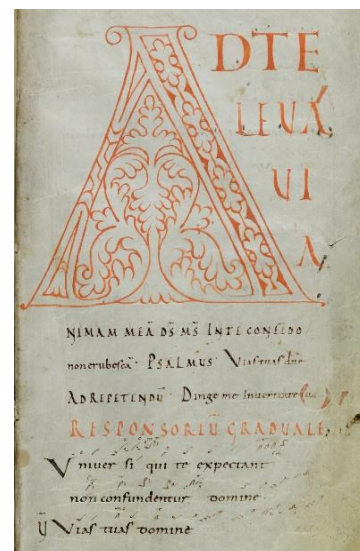 A D TE
LEUA
UI
A
NIMAM MEĀ DS̄ MS̄ INTE CONFIDO
non erubescā. PSALMUS. Vias tuas dn̄e
AD REPETENDŪ. Dirige me In ueritate tua
RESPONSORIŪ GRADUALE
Vniuer si qui te expectant
non confundentur domine
V̄ Vias tuas domine